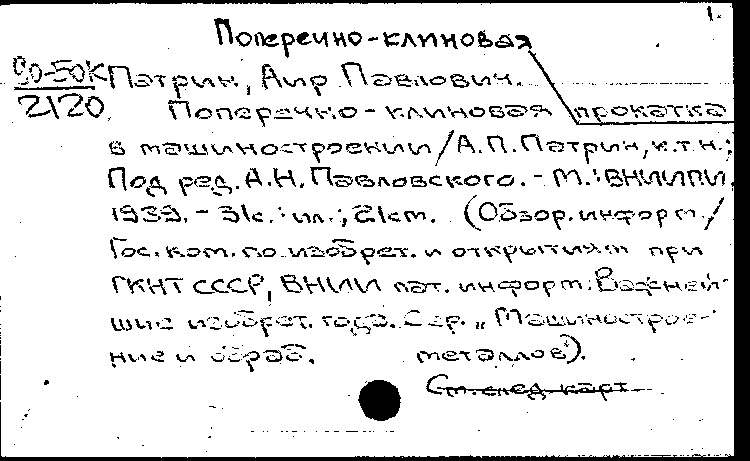 1.
Поперечно-клиновая
90-50К Патрин, Аир Павлович.
2120 Поперечно-клиновая прокатка
в машиностроении/А.П.Патрин, к.т.н.;
Под ред. А.Н.Павловского. - М.: ВНИИПИ,
1989. - 31с.: ил.; 21см. (Обзор. информ./
Гос. ком. по изобрет. и открытиям при
ГКНТ СССР, ВНИИ пат. информ. Важней-
шие изобрет. года. Сер. „Машинострое-
ние и обраб. металлов").
См. след. карт.